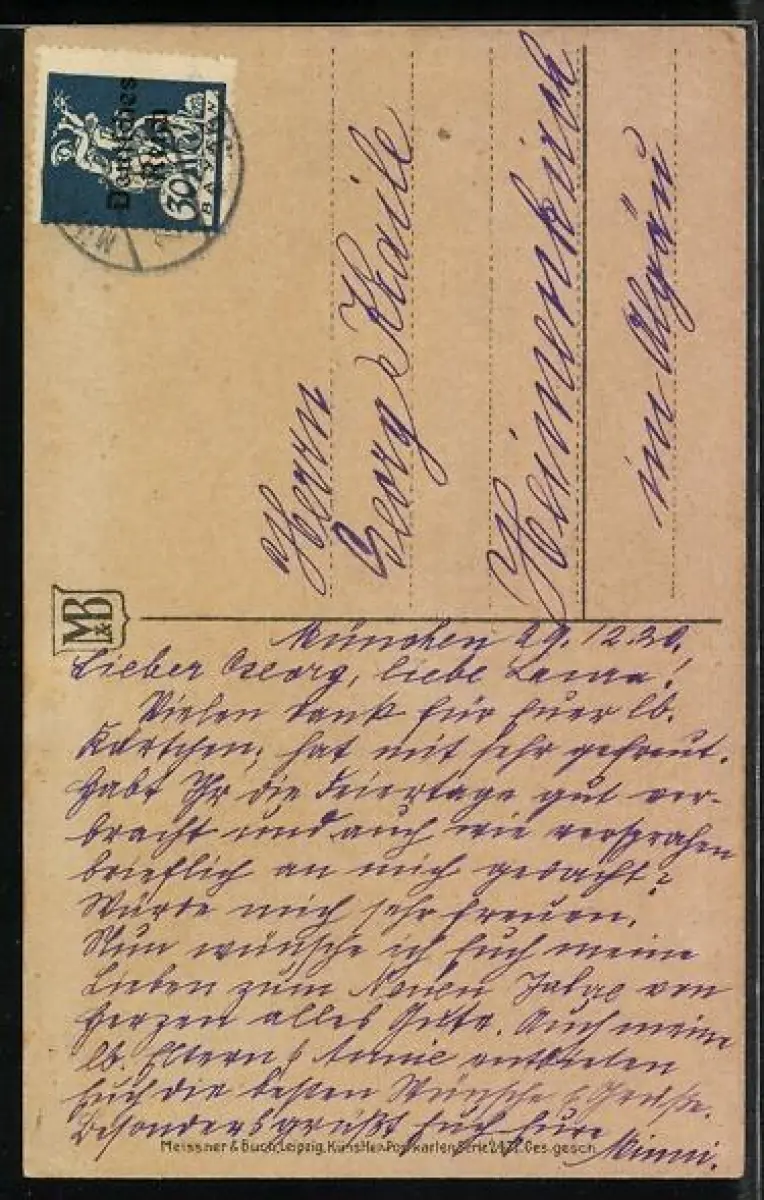 Deutsches
Reich
30
BAYERN
Herrn
Georg Kraile
Heimenkirch
im Algäu
M&B
München 29.12.20.
Lieber Georg, liebe !
Vielen Dank für Euer lb.
Kärtchen, hat mit sehr gefreut.
Habt Ihr die Feiertage gut ver-
bracht und auch wie versprohen
brieflich an mich gedacht?
Würde mich sehr freuen.
Nun wünsche ich Euch meine
Lieben zum Neuen Jahre von
Herzen alles Gute. Auch meine
lb. Eltern & Annie entbieten
Euch die besten Wünsche & Grüße.
Besonders grüßt Euch Eure
Minni.
Meissner & Buch, Leipzig. Künstler-Postkarten Serie Ges. gesch.